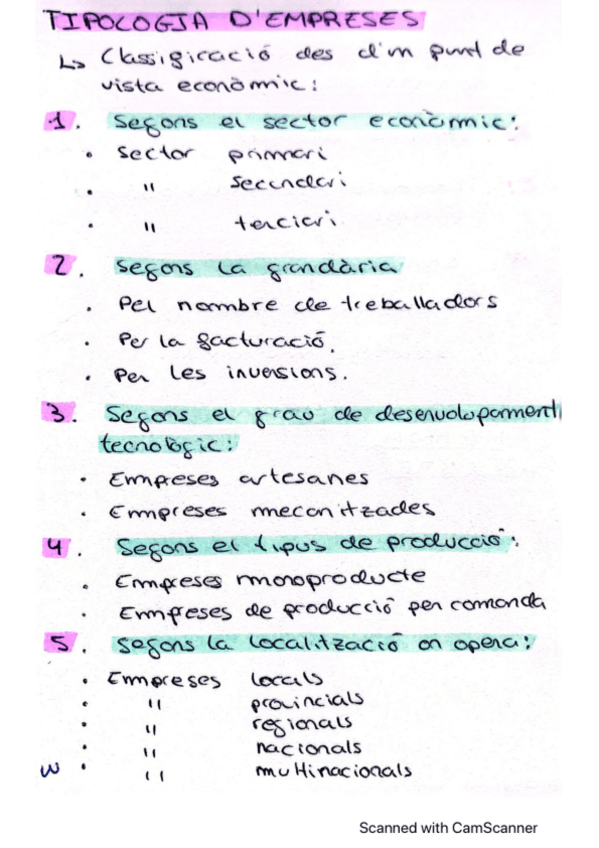 TIPOLOGIA D'EMPRESES
↳ Classificació des d'un punt de
vista econòmic:
1. Segons el sector econòmic:
• Sector primari
• " Secundari
• " terciari
2. Segons la grandària
• Pel nombre de treballadors
• Per la facturació.
• Per les inversions.
3. Segons el grau de desenvolupament
tecnològic:
• Empreses artesanes
• Empreses mecanitzades
4. Segons el tipus de producció:
• Empreses monoproducte
• Empreses de producció per comanda
5. Segons la localització on opera:
• Empreses locals
• " provincials
• " regionals
• " nacionals
• " multinacionals
Scanned with CamScanner